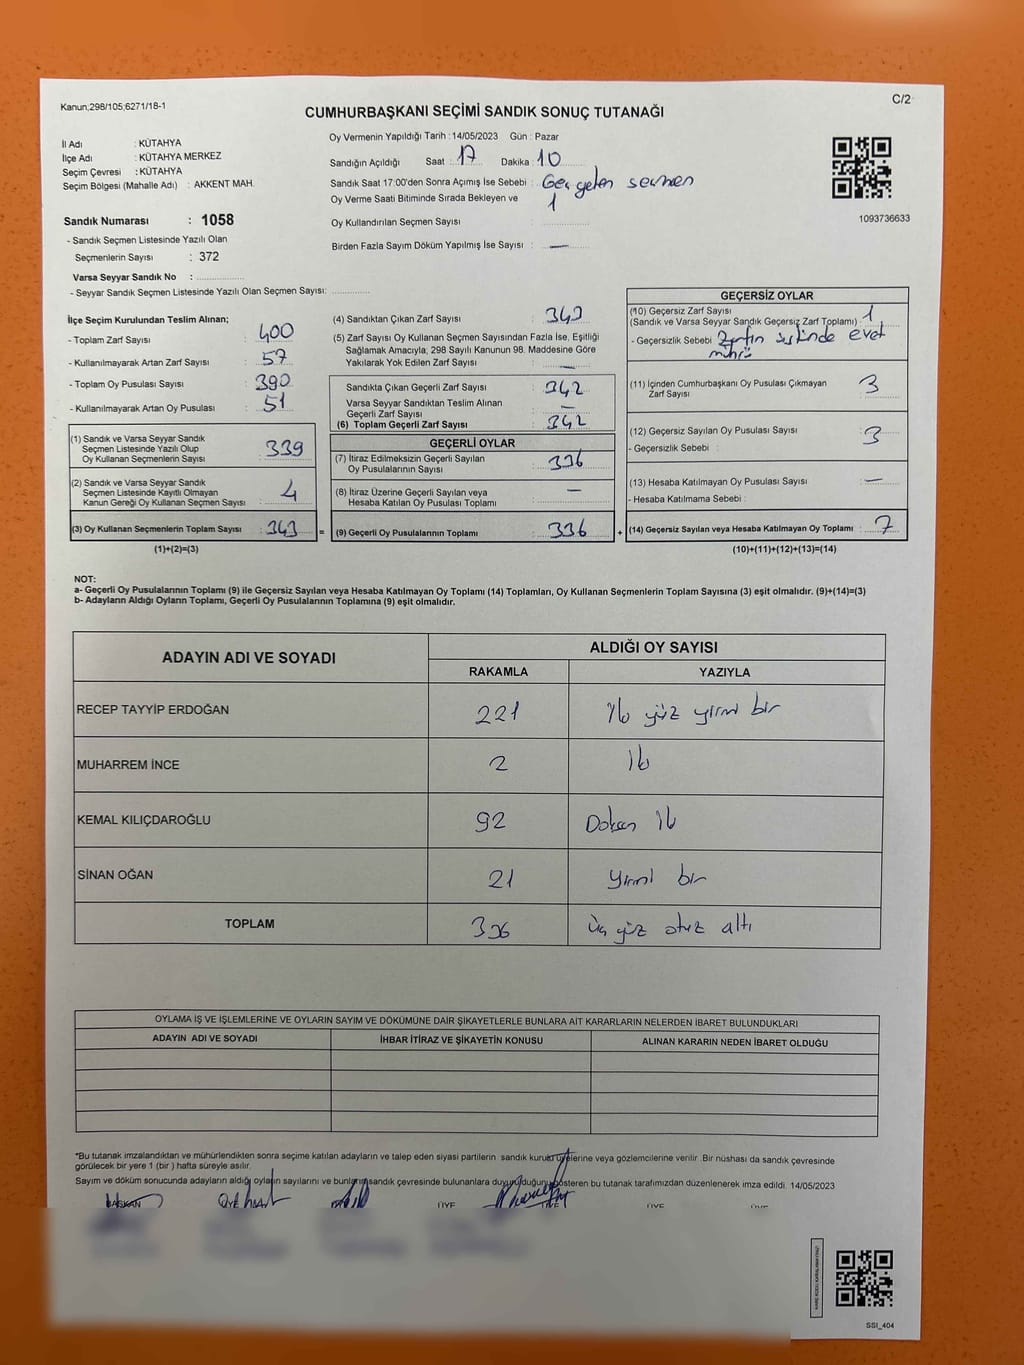 Kanun;298/105;6271/18-1
C/2
CUMHURBAŞKANI SEÇİMİ SANDIK SONUÇ TUTANAĞI
İl Adı : KÜTAHYA
İlçe Adı : KÜTAHYA MERKEZ
Seçim Çevresi : KÜTAHYA
Seçim Bölgesi (Mahalle Adı) : AKKENT MAH.
Sandık Numarası : 1058
- Sandık Seçmen Listesinde Yazılı Olan
Seçmenlerin Sayısı : 372
Varsa Seyyar Sandık No :
- Seyyar Sandık Seçmen Listesinde Yazılı Olan Seçmen Sayısı:
Oy Vermenin Yapıldığı Tarih : 14/05/2023 Gün : Pazar
Sandığın Açıldığı Saat : 17 Dakika : 10
Sandık Saat 17:00'den Sonra Açımış İse Sebebi : Geç gelen seçmen
Oy Verme Saati Bitiminde Sırada Bekleyen ve
Oy Kullandırılan Seçmen Sayısı : 1
Birden Fazla Sayım Döküm Yapılmış İse Sayısı : —
1093736633
İlçe Seçim Kurulundan Teslim Alınan;
- Toplam Zarf Sayısı : 400
- Kullanılmayarak Artan Zarf Sayısı : 57
- Toplam Oy Pusulası Sayısı : 390
- Kullanılmayarak Artan Oy Pusulası : 51
(1) Sandık ve Varsa Seyyar Sandık
Seçmen Listesinde Yazılı Olup
Oy Kullanan Seçmenlerin Sayısı : 339
(2) Sandık ve Varsa Seyyar Sandık
Seçmen Listesinde Kayıtlı Olmayan
Kanun Gereği Oy Kullanan Seçmen Sayısı : 4
(3) Oy Kullanan Seçmenlerin Toplam Sayısı : 343 =
(1)+(2)=(3)
(4) Sandıktan Çıkan Zarf Sayısı : 343
(5) Zarf Sayısı Oy Kullanan Seçmen Sayısından Fazla İse, Eşitliği
Sağlamak Amacıyla; 298 Sayılı Kanunun 98. Maddesine Göre
Yakılarak Yok Edilen Zarf Sayısı : —
Sandıkta Çıkan Geçerli Zarf Sayısı : 342
Varsa Seyyar Sandıktan Teslim Alınan
Geçerli Zarf Sayısı : —
(6) Toplam Geçerli Zarf Sayısı : 342
GEÇERLİ OYLAR
(7) İtiraz Edilmeksizin Geçerli Sayılan
Oy Pusulalarının Sayısı : 336
(8) İtiraz Üzerine Geçerli Sayılan veya
Hesaba Katılan Oy Pusulası Toplamı : —
(9) Geçerli Oy Pusulalarının Toplamı : 336 +
GEÇERSİZ OYLAR
(10) Geçersiz Zarf Sayısı
(Sandık ve Varsa Seyyar Sandık Geçersiz Zarf Toplamı) : 1
- Geçersizlik Sebebi : Zarfın üstünde evet
mührü
(11) İçinden Cumhurbaşkanı Oy Pusulası Çıkmayan
Zarf Sayısı : 3
(12) Geçersiz Sayılan Oy Pusulası Sayısı : 3
- Geçersizlik Sebebi :
(13) Hesaba Katılmayan Oy Pusulası Sayısı : —
- Hesaba Katılmama Sebebi :
(14) Geçersiz Sayılan veya Hesaba Katılmayan Oy Toplamı : 7
(10)+(11)+(12)+(13)=(14)
NOT:
a- Geçerli Oy Pusulalarının Toplamı (9) ile Geçersiz Sayılan veya Hesaba Katılmayan Oy Toplamı (14) Toplamları, Oy Kullanan Seçmenlerin Toplam Sayısına (3) eşit olmalıdır. (9)+(14)=(3)
b- Adayların Aldığı Oyların Toplamı, Geçerli Oy Pusulalarının Toplamına (9) eşit olmalıdır.
ADAYIN ADI VE SOYADI ALDIĞI OY SAYISI
RAKAMLA YAZIYLA
RECEP TAYYİP ERDOĞAN 221 İki yüz yirmi bir
MUHARREM İNCE 2 İki
KEMAL KILIÇDAROĞLU 92 Doksan iki
SİNAN OĞAN 21 yirmi bir
TOPLAM 336 Üç yüz otuz altı
OYLAMA İŞ VE İŞLEMLERİNE VE OYLARIN SAYIM VE DÖKÜMÜNE DAİR ŞİKAYETLERLE BUNLARA AİT KARARLARIN NELERDEN İBARET BULUNDUKLARI
ADAYIN ADI VE SOYADI İHBAR İTİRAZ VE ŞİKAYETİN KONUSU ALINAN KARARIN NEDEN İBARET OLDUĞU
*Bu tutanak imzalandıktan ve mühürlendikten sonra seçime katılan adayların ve talep eden siyasi partilerin sandık kurulu üyelerine veya gözlemcilerine verilir. Bir nüshası da sandık çevresinde
görülecek bir yere 1 (bir ) hafta süreyle asılır.
Sayım ve döküm sonucunda adayların aldığı oyların sayılarını ve bunların sandık çevresinde bulunanlara duyurulduğunu gösteren bu tutanak tarafımızdan düzenlenerek imza edildi. 14/05/2023
BAŞKAN ÜYE ÜYE ÜYE ÜYE ÜYE
SSI_404